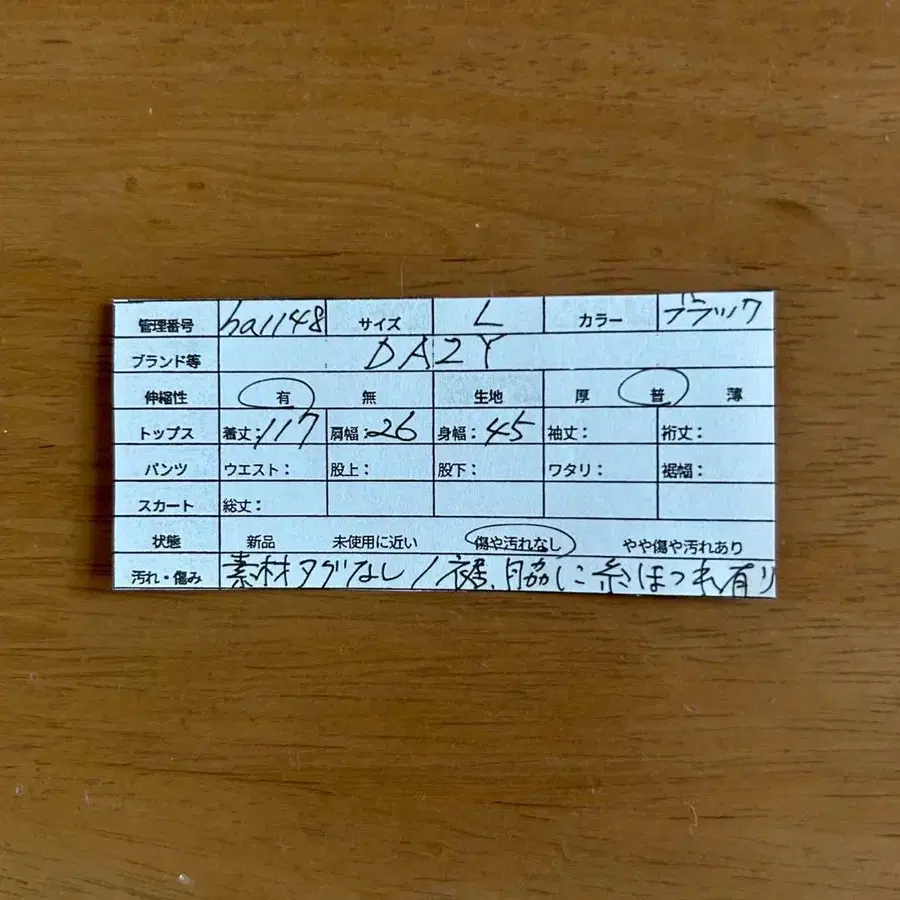 管理番号 ha1148 サイズ L カラー ブラック
ブランド等 DAZY
伸縮性 有 無 生地 厚 普 薄
トップス 着丈:117 肩幅:26 身幅:45 袖丈: 裄丈:
パンツ ウエスト: 股上: 股下: ワタリ: 裾幅:
スカート 総丈:
状態 新品 未使用に近い 傷や汚れなし やや傷や汚れあり
汚れ・傷み 素材タグなし/裾、脇に糸ほつれ有り